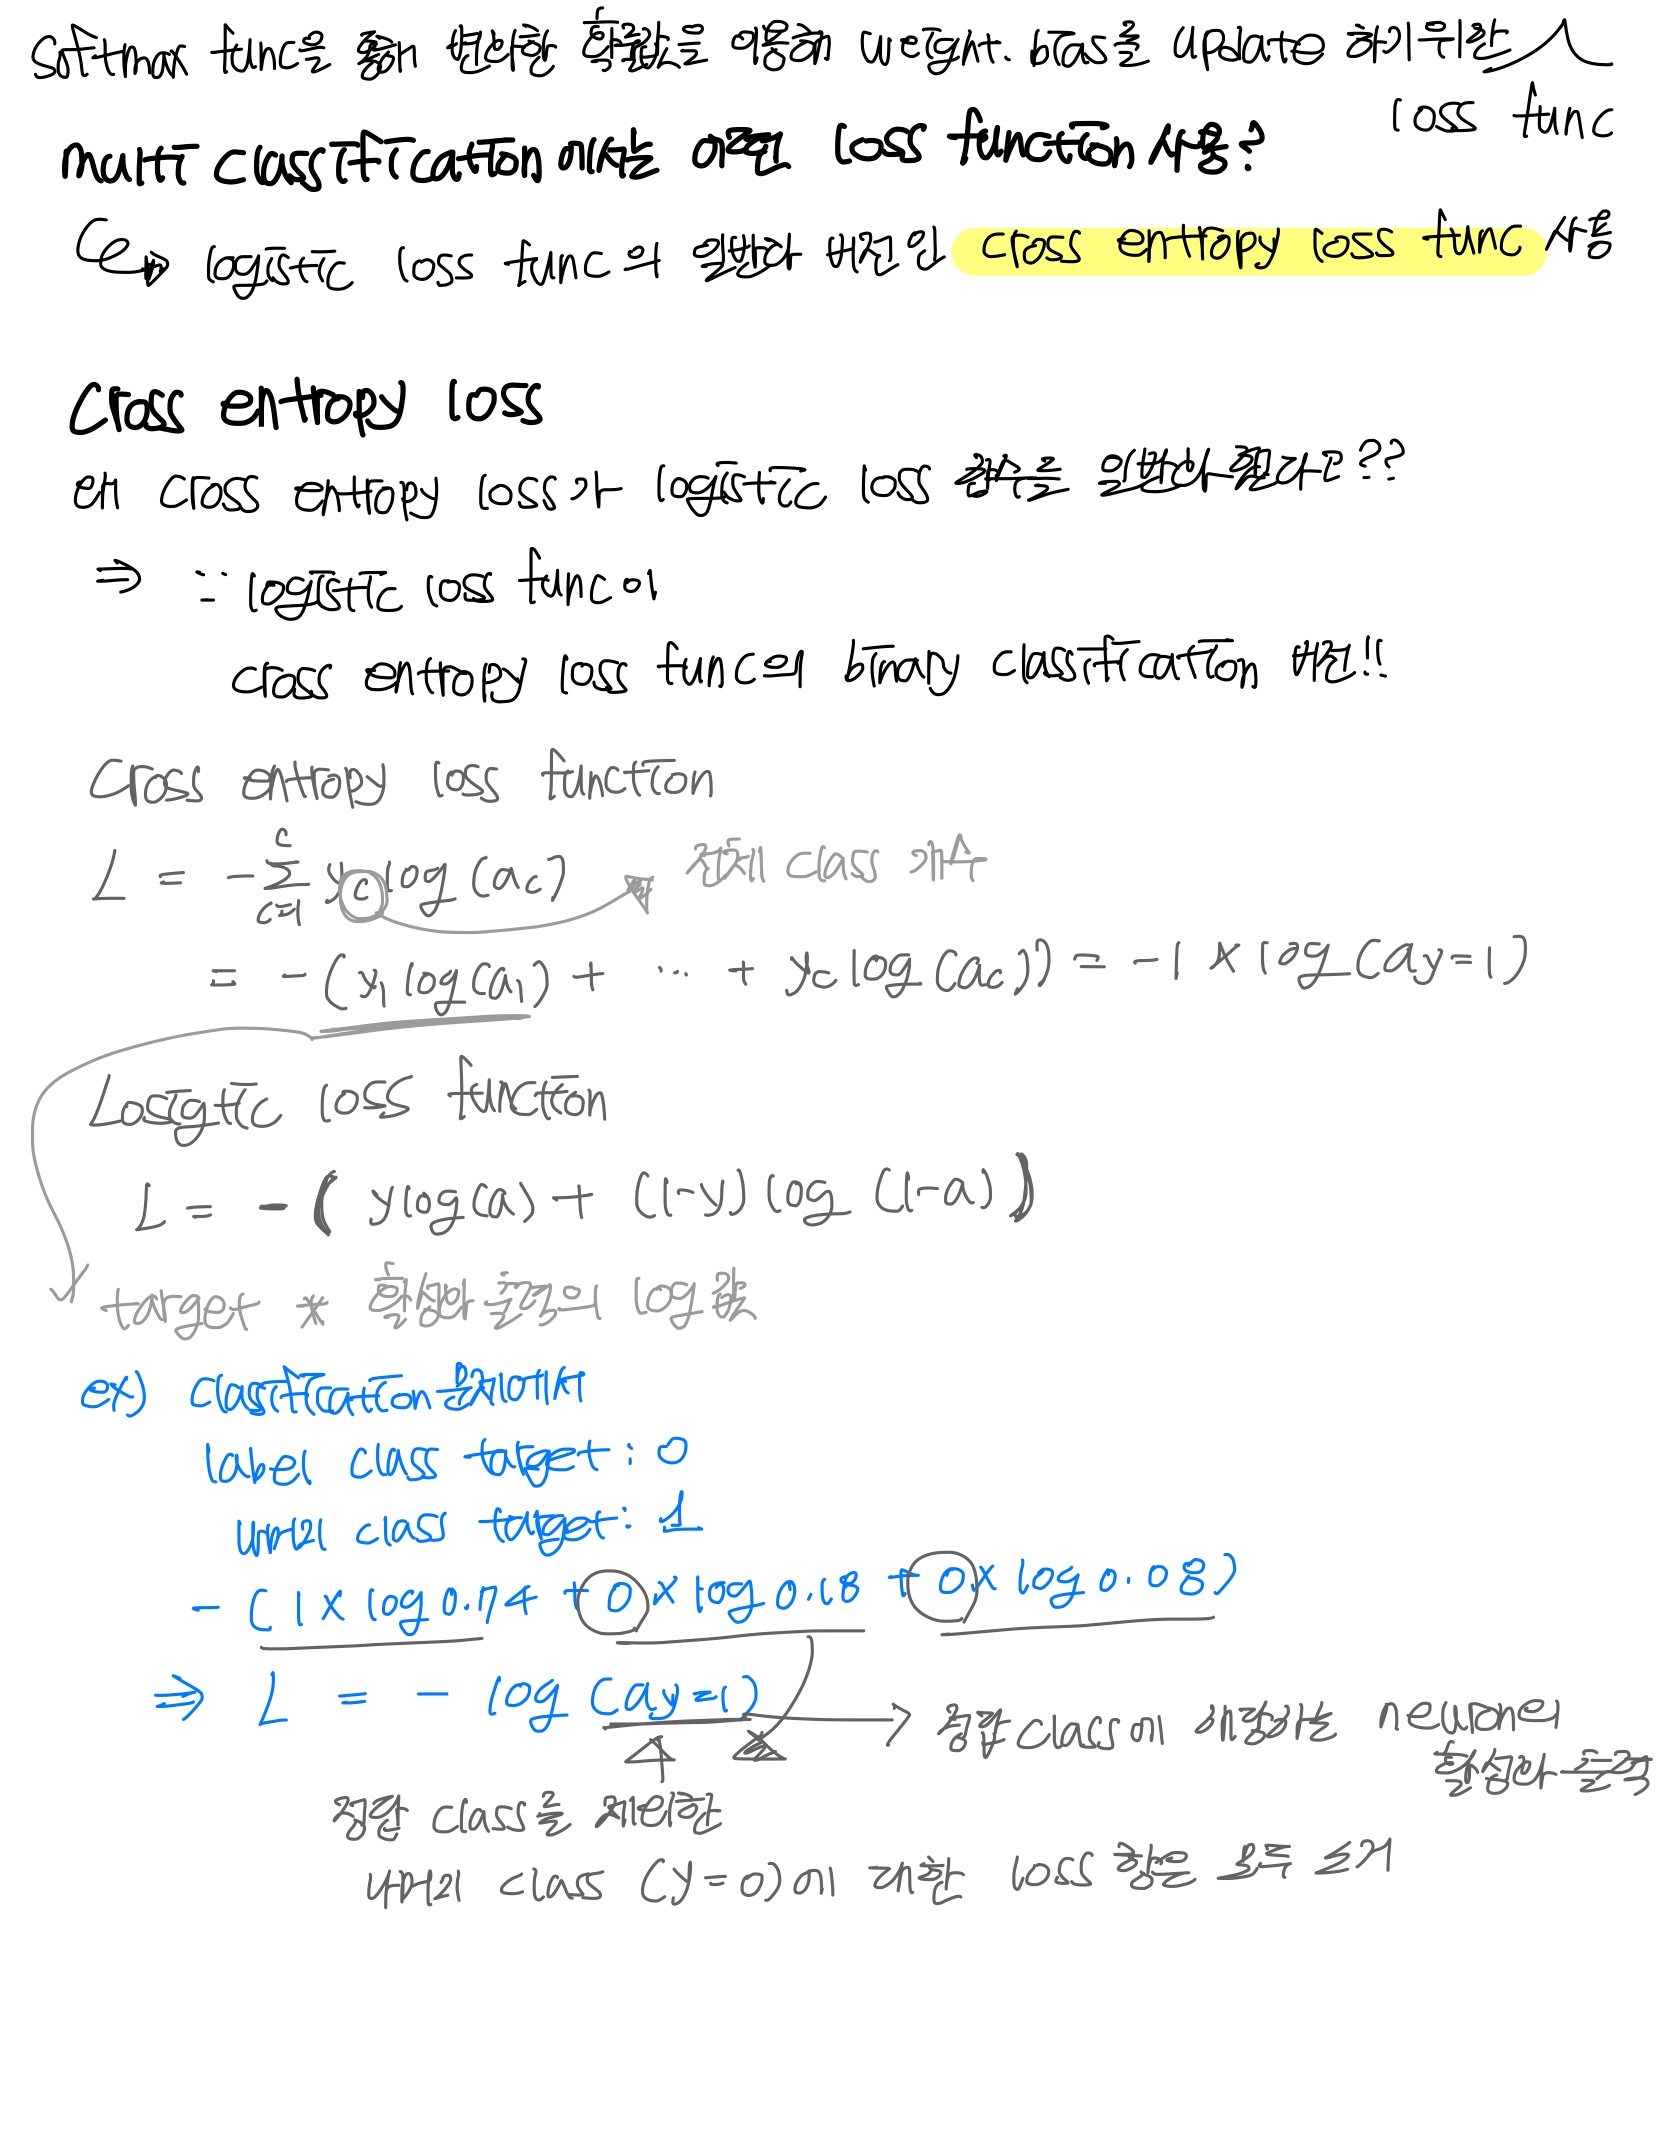 softmax func을 통해 변화한 확률값을 이용해 weight. bias를 update 하기위한
loss func
multi classification에서는 어떤 loss function 사용?
logistic loss func의 일반화 버전인 cross entropy loss func 사용
Cross entropy loss
왜 cross entropy loss가 logistic loss 함수를 일반화 했다고??
⇒ ∵ logistic loss func이
cross entropy loss func의 binary classification 버전!!
Cross entropy loss function
L = -∑ c c=1 yc log(ac) 전체 class 개수
= -(y1 log(a1) + ... + yc log(ac)) = -1 × log(ay=1)
Losigtic loss function
L = -( ylog(a) + (1-y) log (1-a))
target * 활성화 출력의 log 값
ex) classification 문제에서
label class target : 0
나머지 class target : 1
- (1 × log 0.74 + 0 × log 0.18 + 0 × log 0.08)
⇒ L = - log (ay=1) → 정답 class에 해당하는 neuron의
활성화 출력
정답 class를 제외한
나머지 class (y=0)에 대한 loss 항은 모두 소거